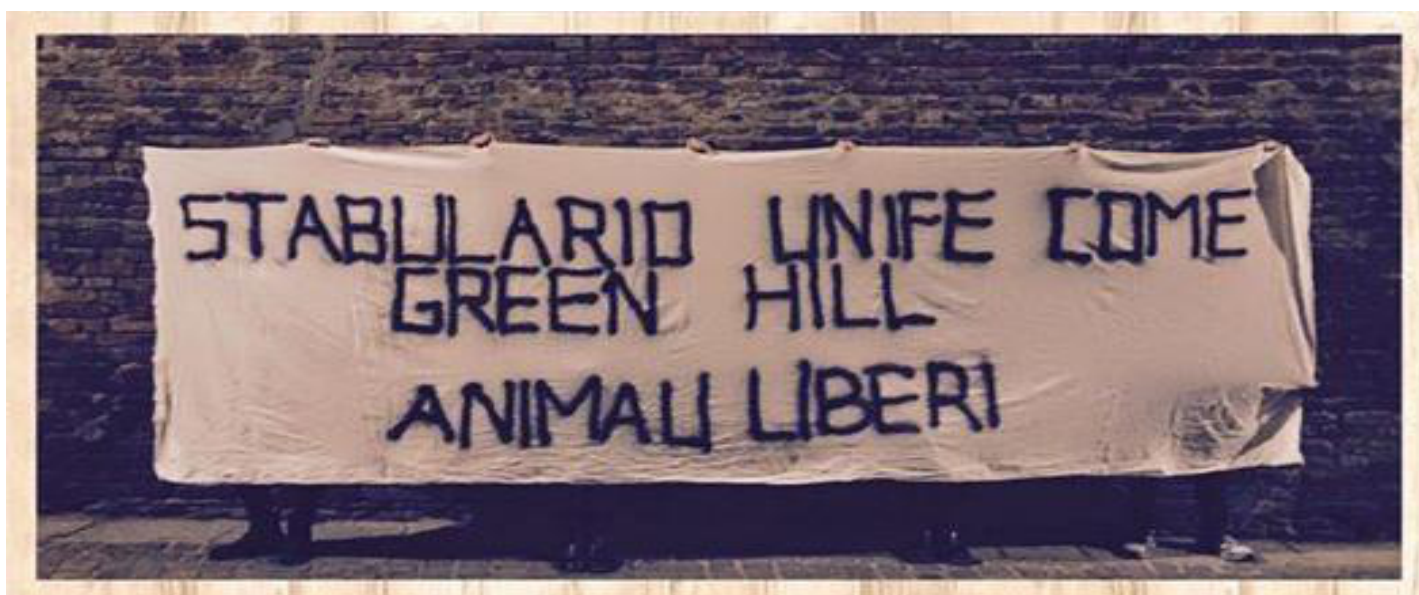 STABULARIO UNIFE COME
GREEN HILL
ANIMALI LIBERI